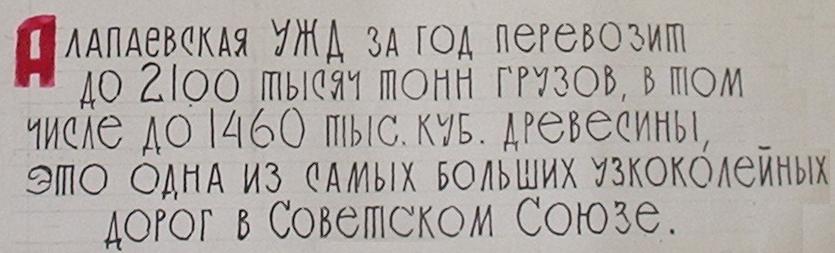 Алапаевская УЖД за год перевозит
до 2100 тысяч тонн грузов, в том
числе до 1460 тыс. куб. древесины,
это одна из самых больших узкоколейных
дорог в Советском Союзе.